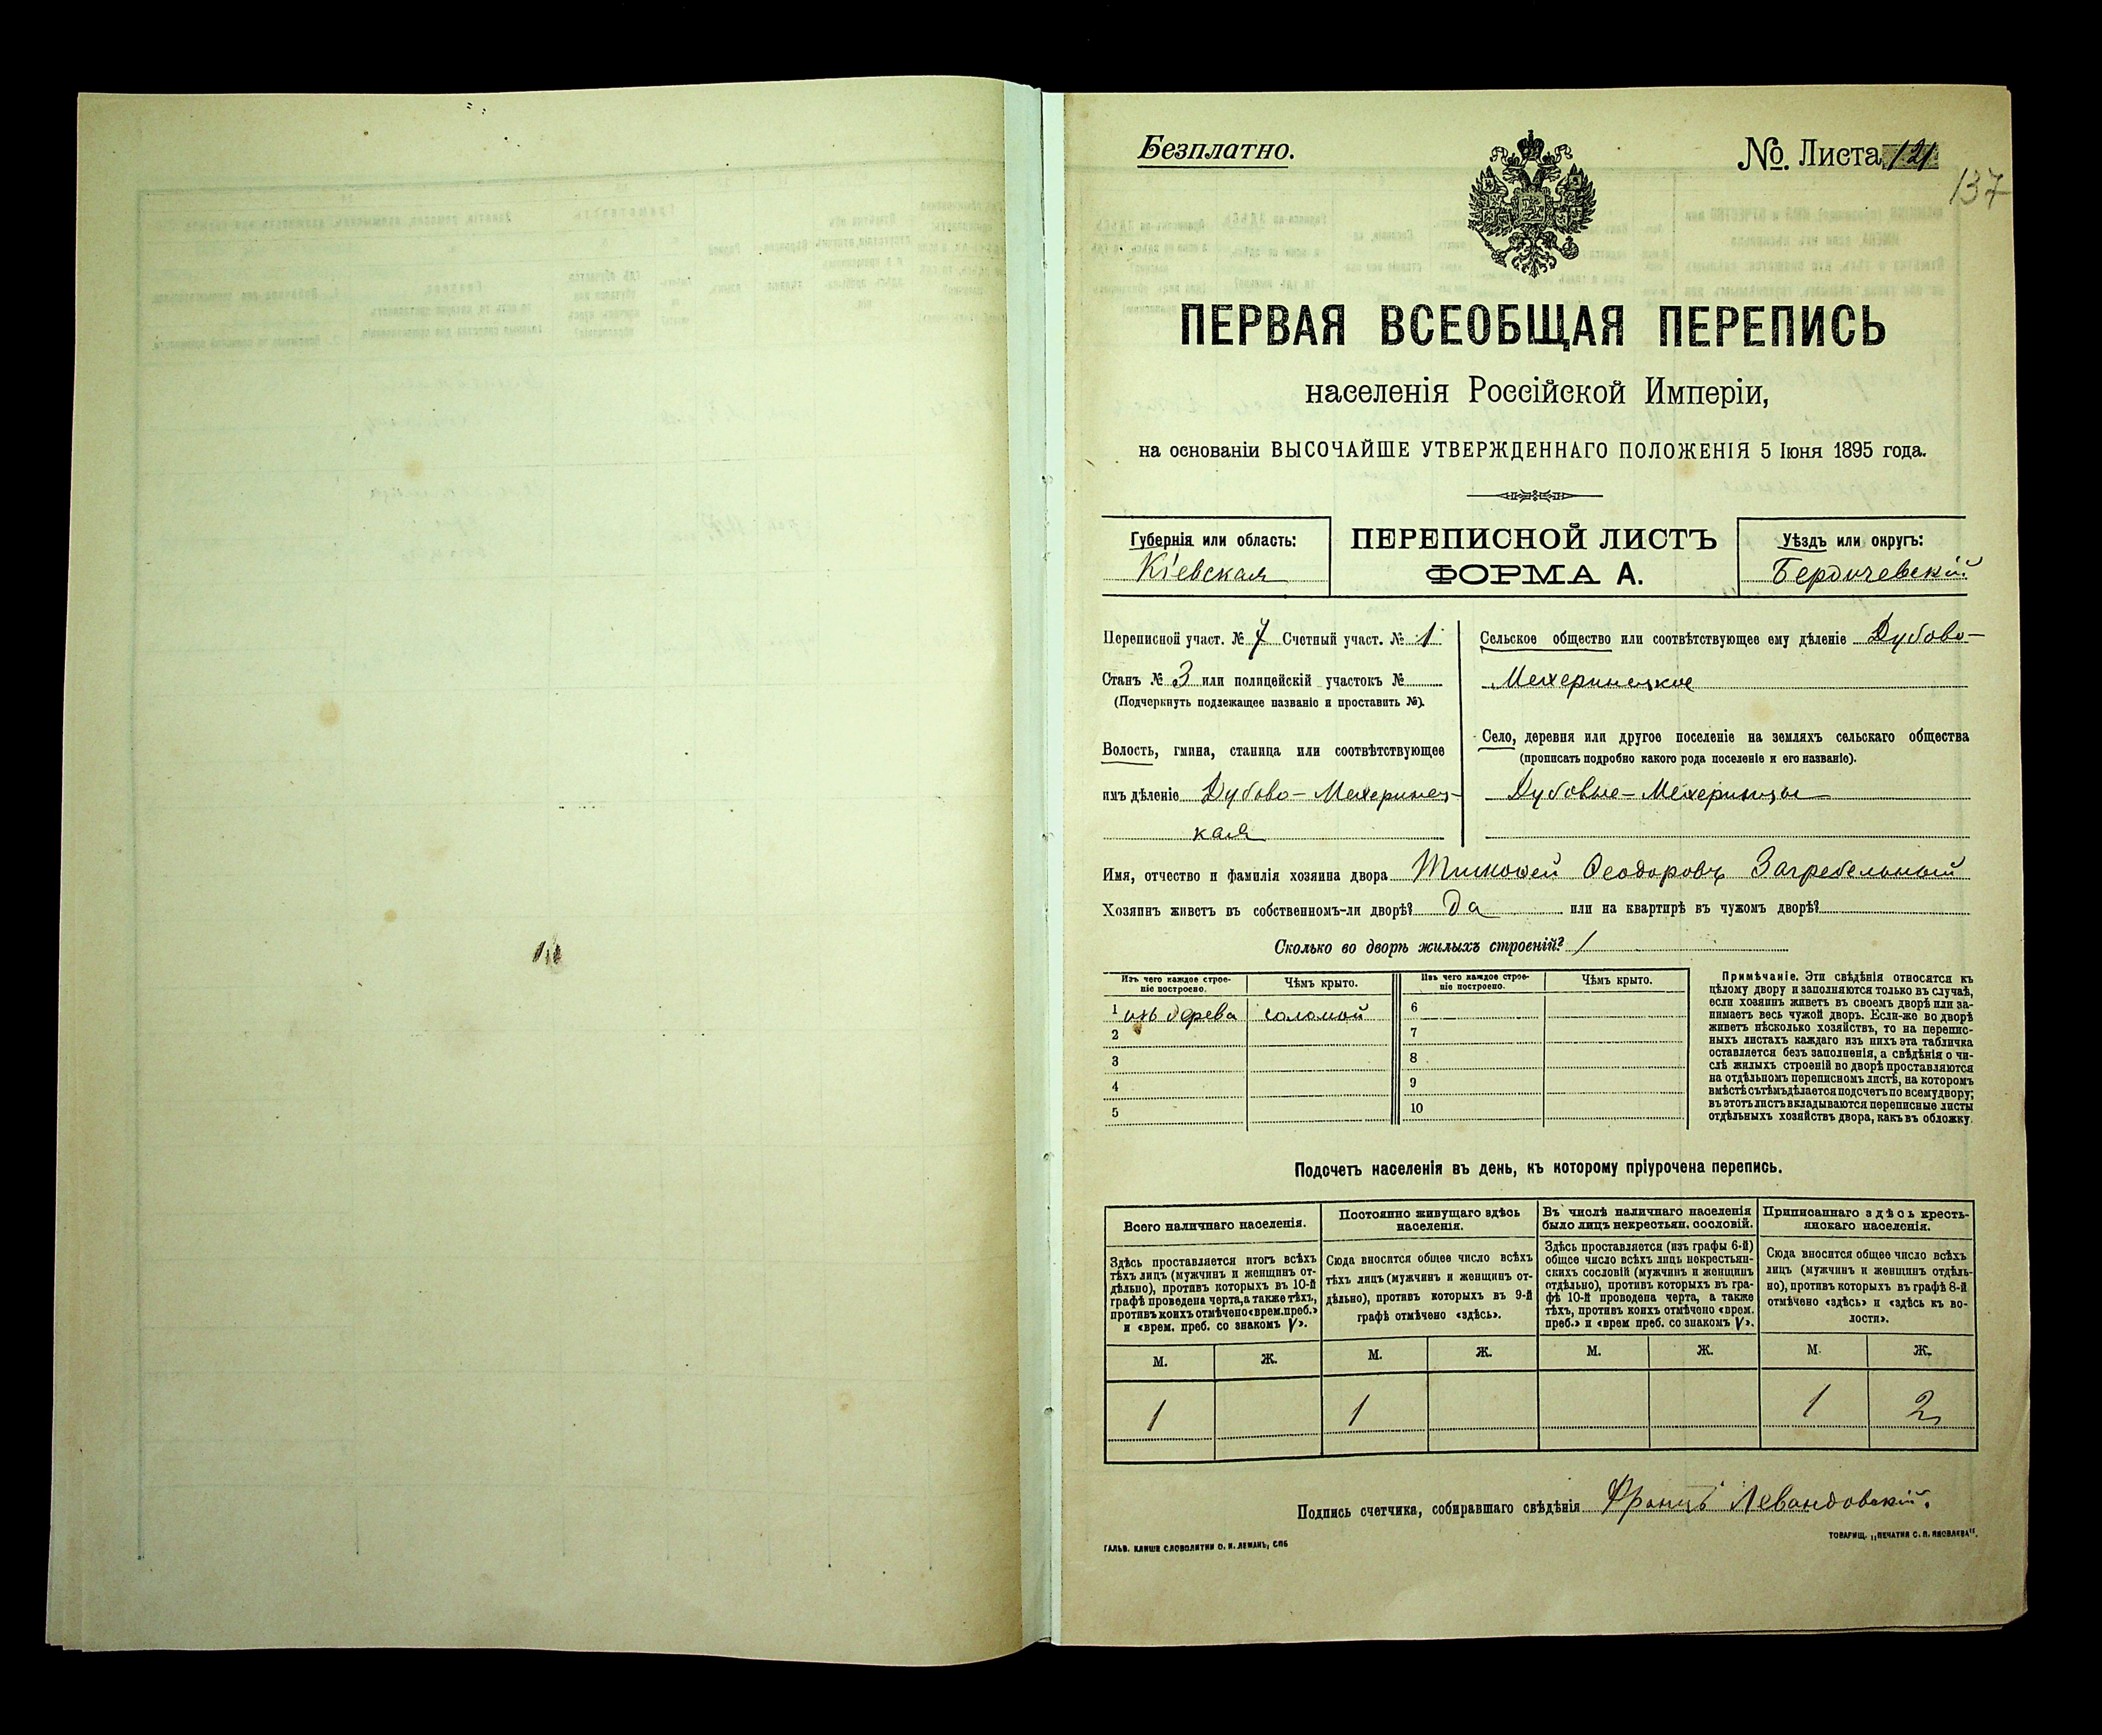 Безплатно.
№. Листа 121
137
ПЕРВАЯ ВСЕОБЩАЯ ПЕРЕПИСЬ
населенія Россійской Имперіи,
на основаніи ВЫСОЧАЙШЕ УТВЕРЖДЕННАГО ПОЛОЖЕНІЯ 5 Іюня 1895 года.
Губернія или область:
Кіевская
ПЕРЕПИСНОЙ ЛИСТЪ
ФОРМА А.
Уѣздъ или округъ:
Бердичевскій
Переписной участ. № 7 Счетный участ. № 1
Станъ № 3 или полицейскій участокъ №
(Подчеркнуть подлежащее названіе и проставить №).
Волость, гмина, станица или соотвѣтствующее
имъ дѣленіе Дубово-Мехеринец-
кая
Сельское общество или соотвѣтствующее ему дѣленіе Дубово-
Мехеринецкое
Село, деревня или другое поселеніе на земляхъ сельскаго общества
(прописать подробно какого рода поселеніе и его названіе).
Дубовые-Мехеринцы
Имя, отчество и фамилія хозяина двора Тимофей Феодоровъ Загребельный
Хозяинъ живетъ въ собственномъ-ли дворѣ? Да или на квартирѣ въ чужомъ дворѣ?
Сколько во дворѣ жилыхъ строеній? 1
Изъ чего каждое строе-
ніе построено.
Чѣмъ крыто.
Изъ чего каждое строе-
ніе построено.
Чѣмъ крыто.
1 изъ дерева соломой 6
2 7
3 8
4 9
5 10
Примѣчаніе. Эти свѣдѣнія относятся къ
цѣлому двору и заполняются только въ случаѣ,
если хозяинъ живетъ въ своемъ дворѣ или за-
нимаетъ весь чужой дворъ. Если-же во дворѣ
живетъ нѣсколько хозяйствъ, то на перепис-
ныхъ листахъ каждаго изъ нихъ эта табличка
оставляется безъ заполненія, а свѣдѣнія о чи-
слѣ жилыхъ строеній во дворѣ проставляются
на отдѣльномъ переписномъ листѣ, на которомъ
вмѣстѣ съ тѣмъ дѣлается подсчетъ по всему двору;
въ этотъ листъ вкладываются переписные листы
отдѣльныхъ хозяйствъ двора, какъ въ обложку.
Подсчетъ населенія въ день, къ которому пріурочена перепись.
Всего наличнаго населенія.
Здѣсь проставляется итогъ всѣхъ
тѣхъ лицъ (мужчинъ и женщинъ от-
дѣльно), противъ которыхъ въ 10-й
графѣ проведена черта, а также тѣхъ,
противъ коихъ отмѣчено «врем. преб.»
и «врем. преб. со знакомъ V».
Постоянно живущаго здѣсь
населенія.
Сюда вносится общее число всѣхъ
тѣхъ лицъ (мужчинъ и женщинъ от-
дѣльно), противъ которыхъ въ 9-й
графѣ отмѣчено «здѣсь».
Въ числѣ наличнаго населенія
было лицъ некрестьян. сословій.
Здѣсь проставляется (изъ графы 6-й)
общее число всѣхъ лицъ некрестьян-
скихъ сословій (мужчинъ и женщинъ
отдѣльно), противъ которыхъ въ гра-
фѣ 10-й проведена черта, а также
тѣхъ, противъ коихъ отмѣчено «врем.
преб.» и «врем преб. со знакомъ V».
Приписаннаго здѣсь кресть-
янскаго населенія.
Сюда вносится общее число всѣхъ
лицъ (мужчинъ и женщинъ отдѣль-
но), противъ которыхъ въ графѣ 8-й
отмѣчено «здѣсь» и «здѣсь къ во-
лости».
М. Ж. М. Ж. М. Ж. М. Ж.
1 1 1 2
Подпись счетчика, собиравшаго свѣдѣнія Францъ Левандовскій.
ГАЛЬВ. КЛИШЕ СЛОВОЛИТНИ О. И. ЛЕМАНЪ, СПБ
ТОВАРИЩ. „ПЕЧАТНЯ С. П. ЯКОВЛЕВА".